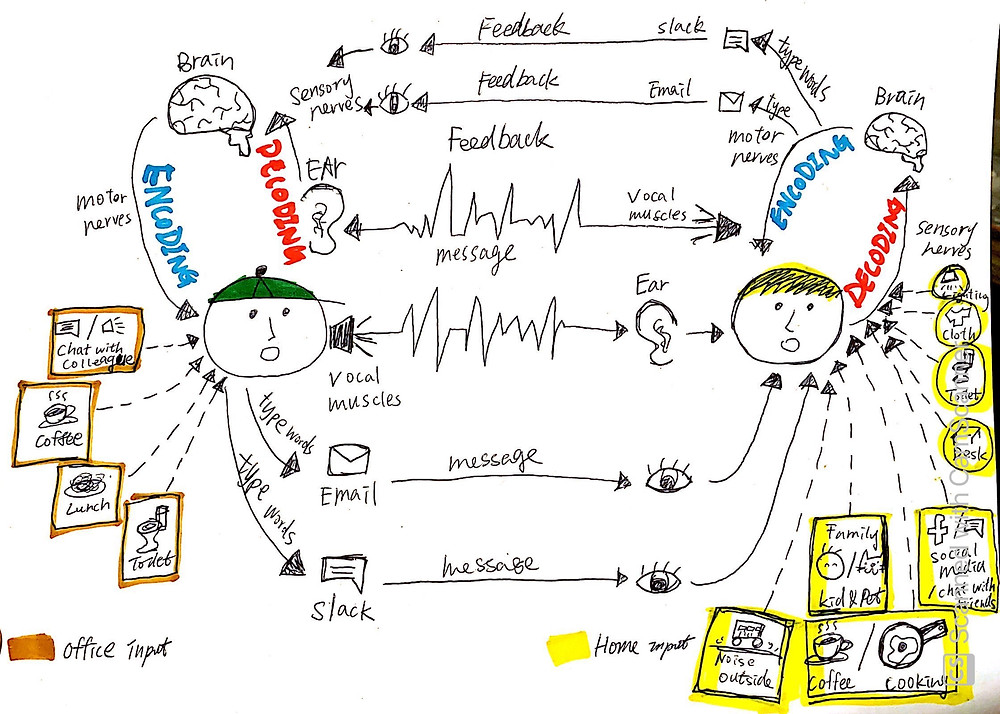 Feedback
slack
type words
Brain
sensory
nerves
Feedback
Email
type
motor
nerves
Brain
Feedback
ENCODING
DECODING
EAr
motor
nerves
message
vocal
muscles
ENCODING
DECODING
sensory
nerves
Ear
vocal
muscles
Lighting
Cloth
Toilet
Desk
Chat with
colleague
Coffee
Lunch
Toilet
type words
type words
message
Email
message
Slack
Family
kid & Pet
social
media
/chat with
friends
Noise
outside
Coffee
/
cooking
Office input
Home input
CS Scanned with CamScanner